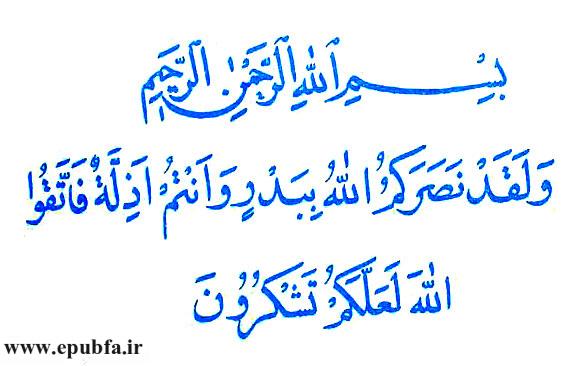 بِسْمِ اللهِ الرَّحْمٰنِ الرَّحِيمِ
وَلَقَدْ نَصَرَكُمُ اللهُ بِبَدْرٍ وَاَنْتُمْ اَذِلَّةٌ فَاتَّقُوا
اللهَ لَعَلَّكُمْ تَشْكُرُونَ
www.epubfa.ir